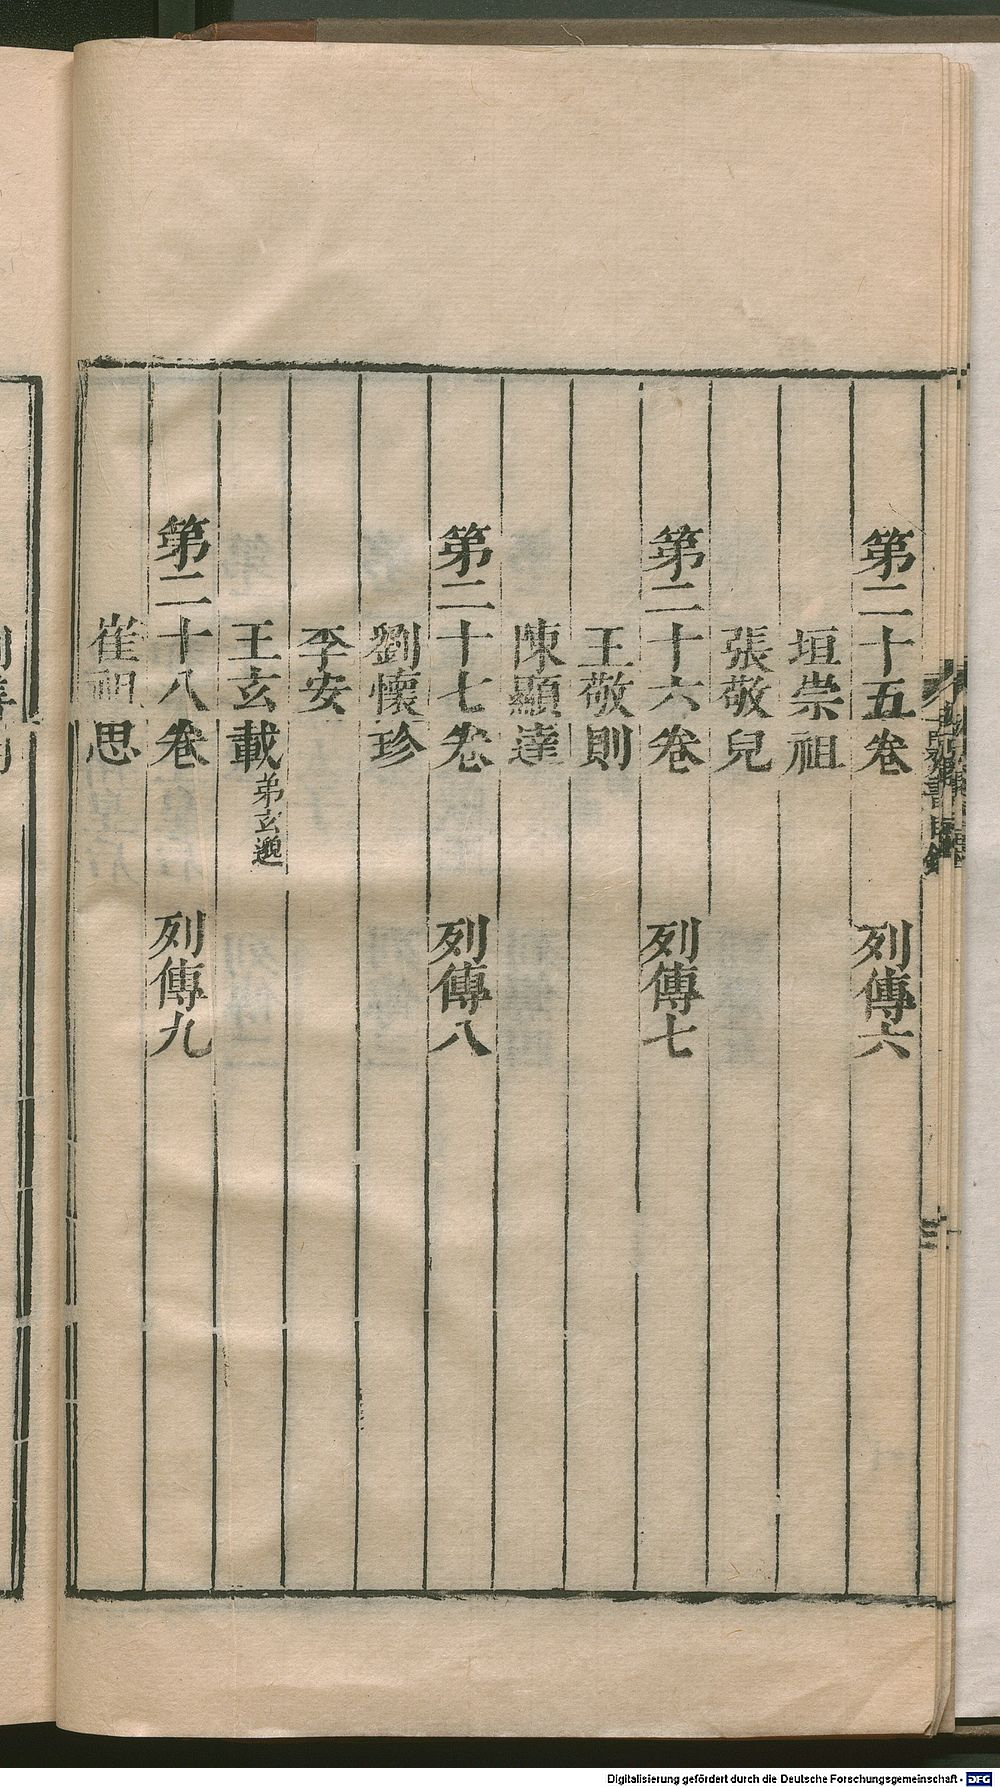 第二十五卷 列傳六
垣崇祖
張敬兒
第二十六卷 列傳七
王敬則
陳顯達
第二十七卷 列傳八
劉懷珍
李安
王玄載弟玄邈
第二十八卷 列傳九
崔祖思
Digitalisierung gefördert durch die Deutsche Forschungsgemeinschaft - DFG